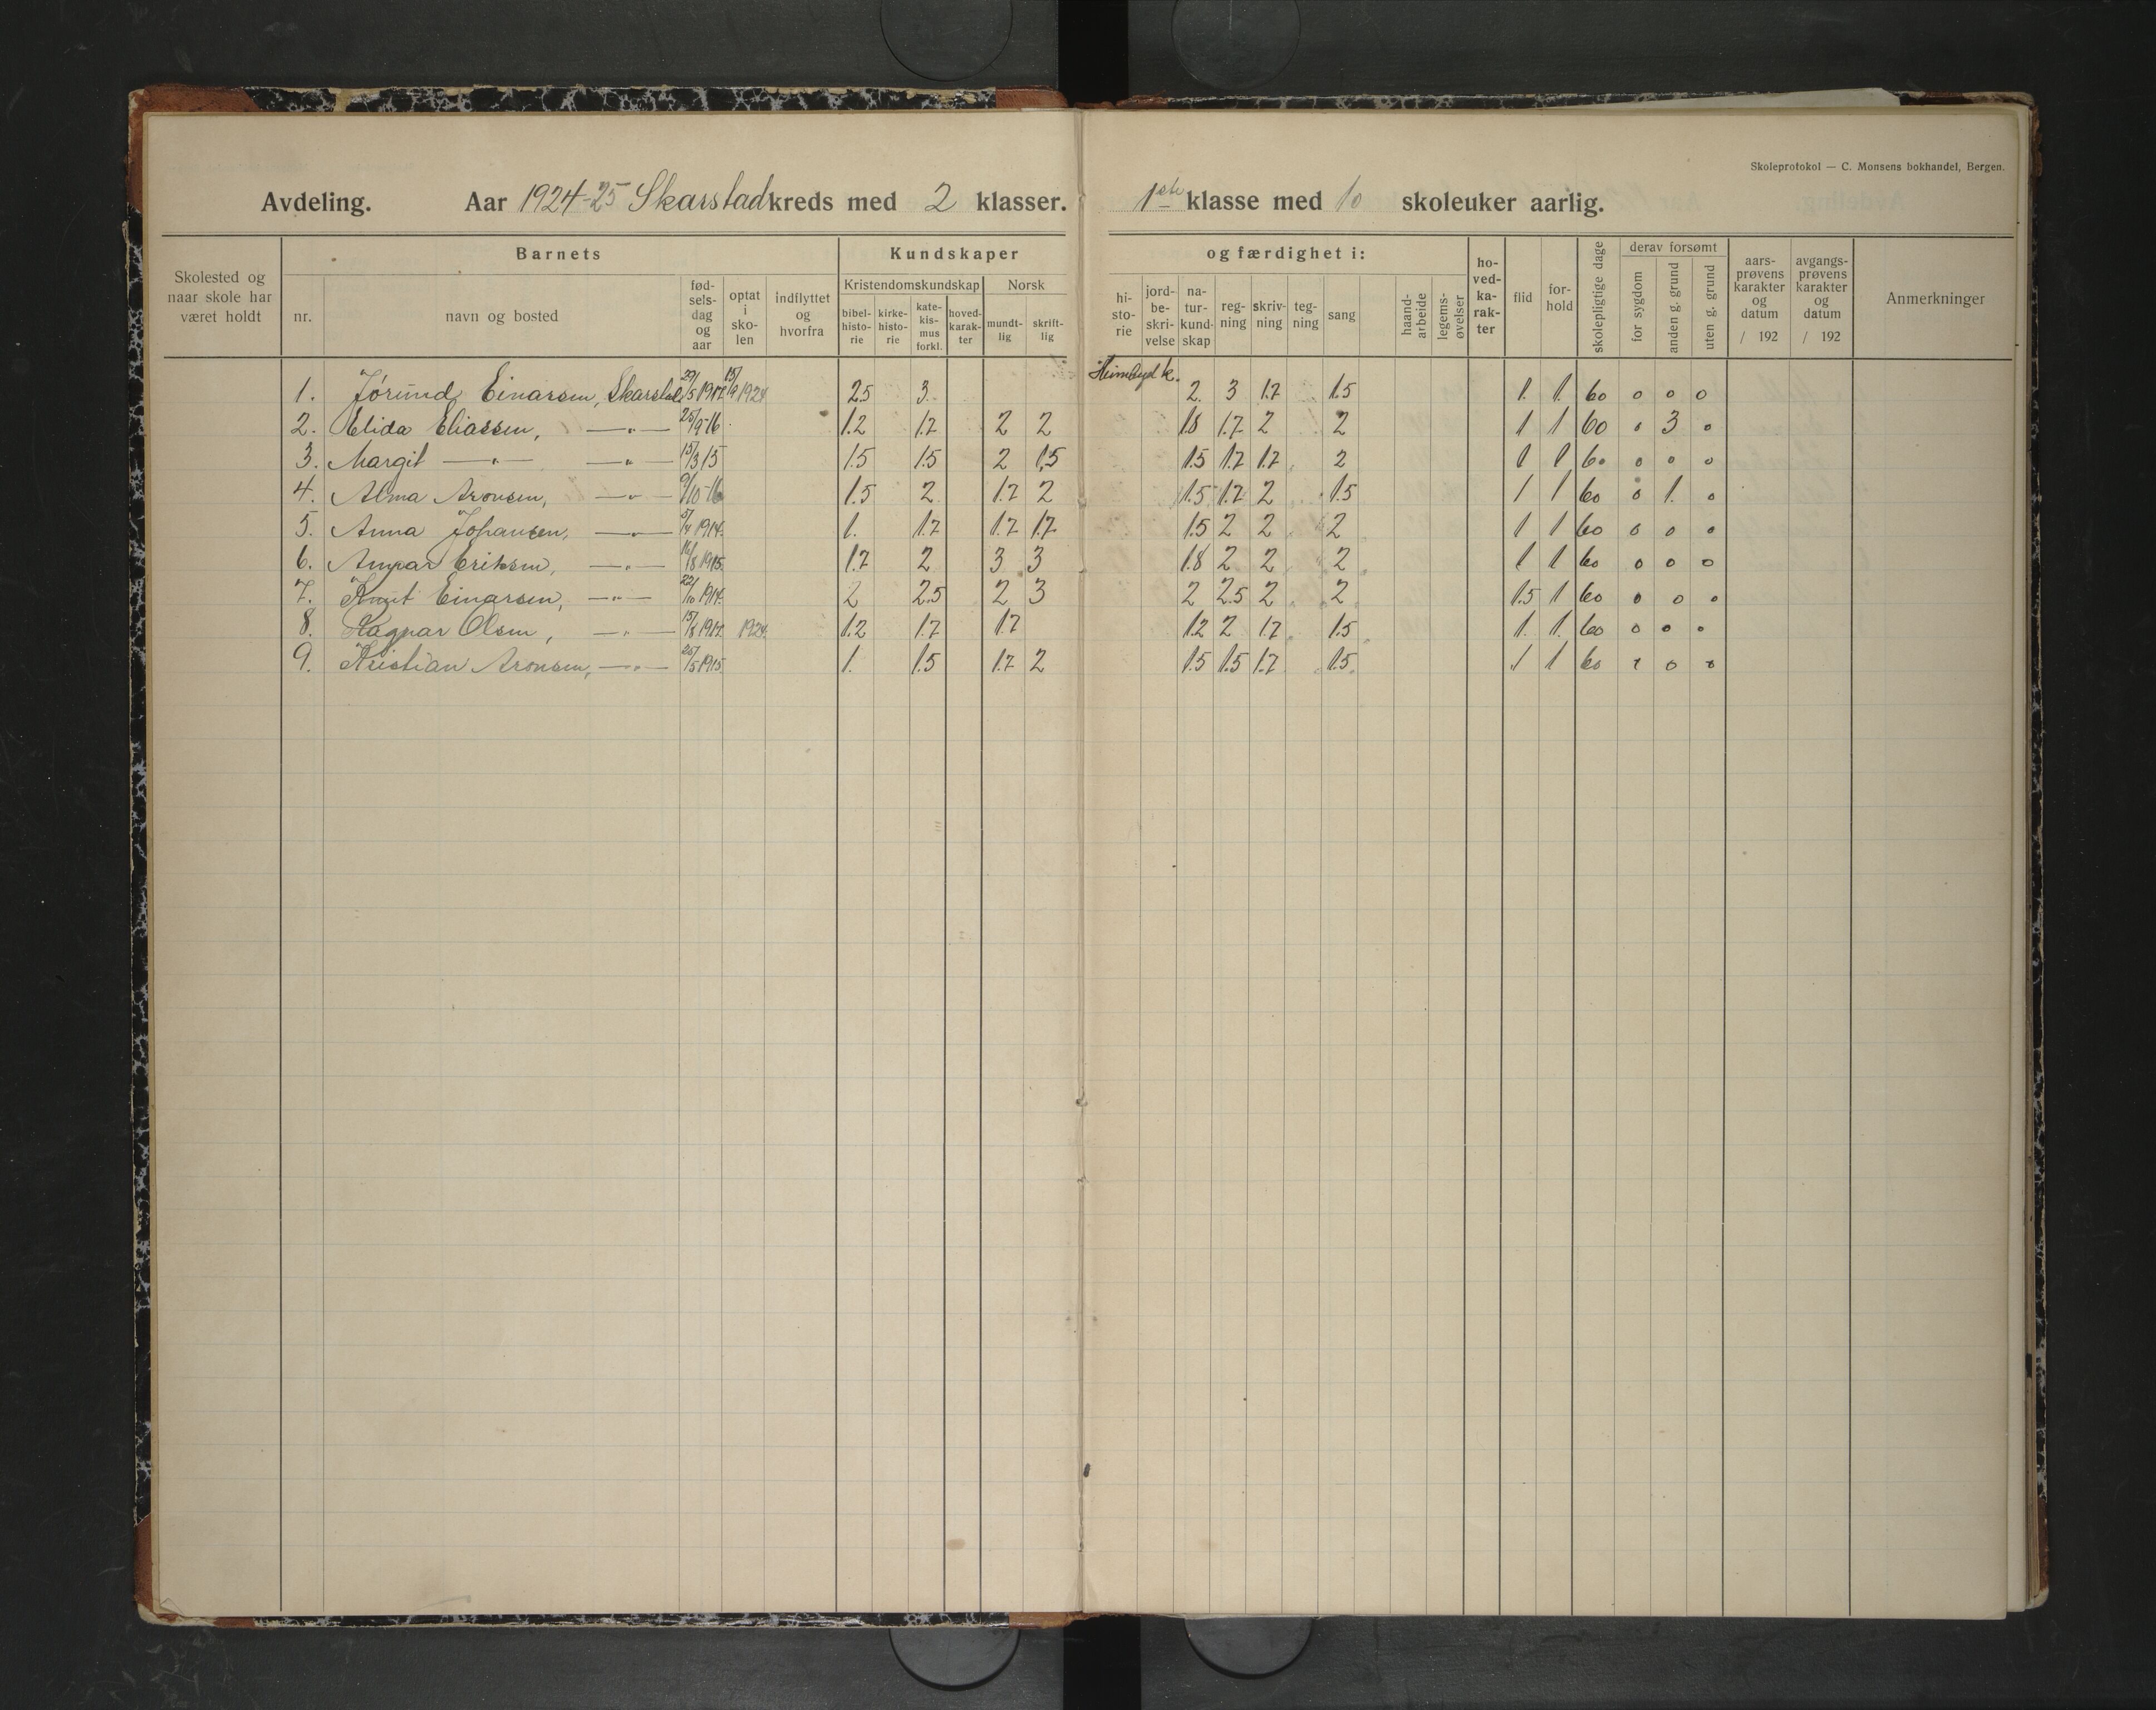 Skoleprotokol — C. Monsens bokhandel, Bergen.
Avdeling. Aar 1924-25 Skarstad kreds med 2 klasser. 1ste klasse med 10 skoleuker aarlig.
Skolested og naar skole har været holdt
Barnets
nr.
navn og bosted
fød-sels-dag og aar
optat i sko-len
indflyttet og hvorfra
Kundskaper og færdighet i:
Kristendomskundskap
bibel-histo-rie
kirke-histo-rie
kate-kis-mus forkl.
hoved-karak-ter
Norsk
mundt-lig
skrift-lig
hi-sto-rie
jord-be-skri-velse
na-tur-kund-skap
reg-ning
skriv-ning
teg-ning
sang
haand-arbeide
legems-øvelser
ho-ved-ka-rak-ter
flid
for-hold
skolepligtige dage
derav forsømt
for sygdom
anden g. grund
uten g. grund
aars-prøvens karakter og datum / 192
avgangs-prøvens karakter og datum / 192
Anmerkninger
1. Jórund Einarsen, Skarstad 15/9 1924 2.5 3. 2. 3 1.7 1.5 1. 1. 60 0 0 0
2. Elida Eliassen, —"— 25/9-16 1.2 1.7 2 2 1.8 1.7 2 2 1 1 60 0 3 0
3. Margit —"— —"— 15/3 15 1.5 1.5 2 1,5 1.5 1.7 1.7 2 1 1 60 0 0 0
4. Alma Aronsen, —"— 9/10-16 1.5 2 1.7 2 1.5 1.7 2 1.5 1 1 60 0 1. 0
5. Anna Johansen, —"— 5/4 1914. 1. 1.7 1.7 1.7 1.5 2 2 2 1 1 60 0 0 0
6. Eriksen, —"— 16/8 1915. 1.7 2 3 3 1.8 2 2 2 1 1 60 0 0 0
7. Knut Einarsen, —"— 22/10 1914. 2 2.5 2 3 2 2.5 2 2 1.5 1 60 0 0 0
8. Ragnar Olsen, —"— 15/8 1924. 1.2 1.7 1.7 1.2 2 1.7 1.5 1. 1. 60 0 0 0
9. Kristian Aronsen, —"— 26/5 1915. 1. 1.5 1.7 2 1.5 1.5 1.7 1.5 1 1 60 0 0 0